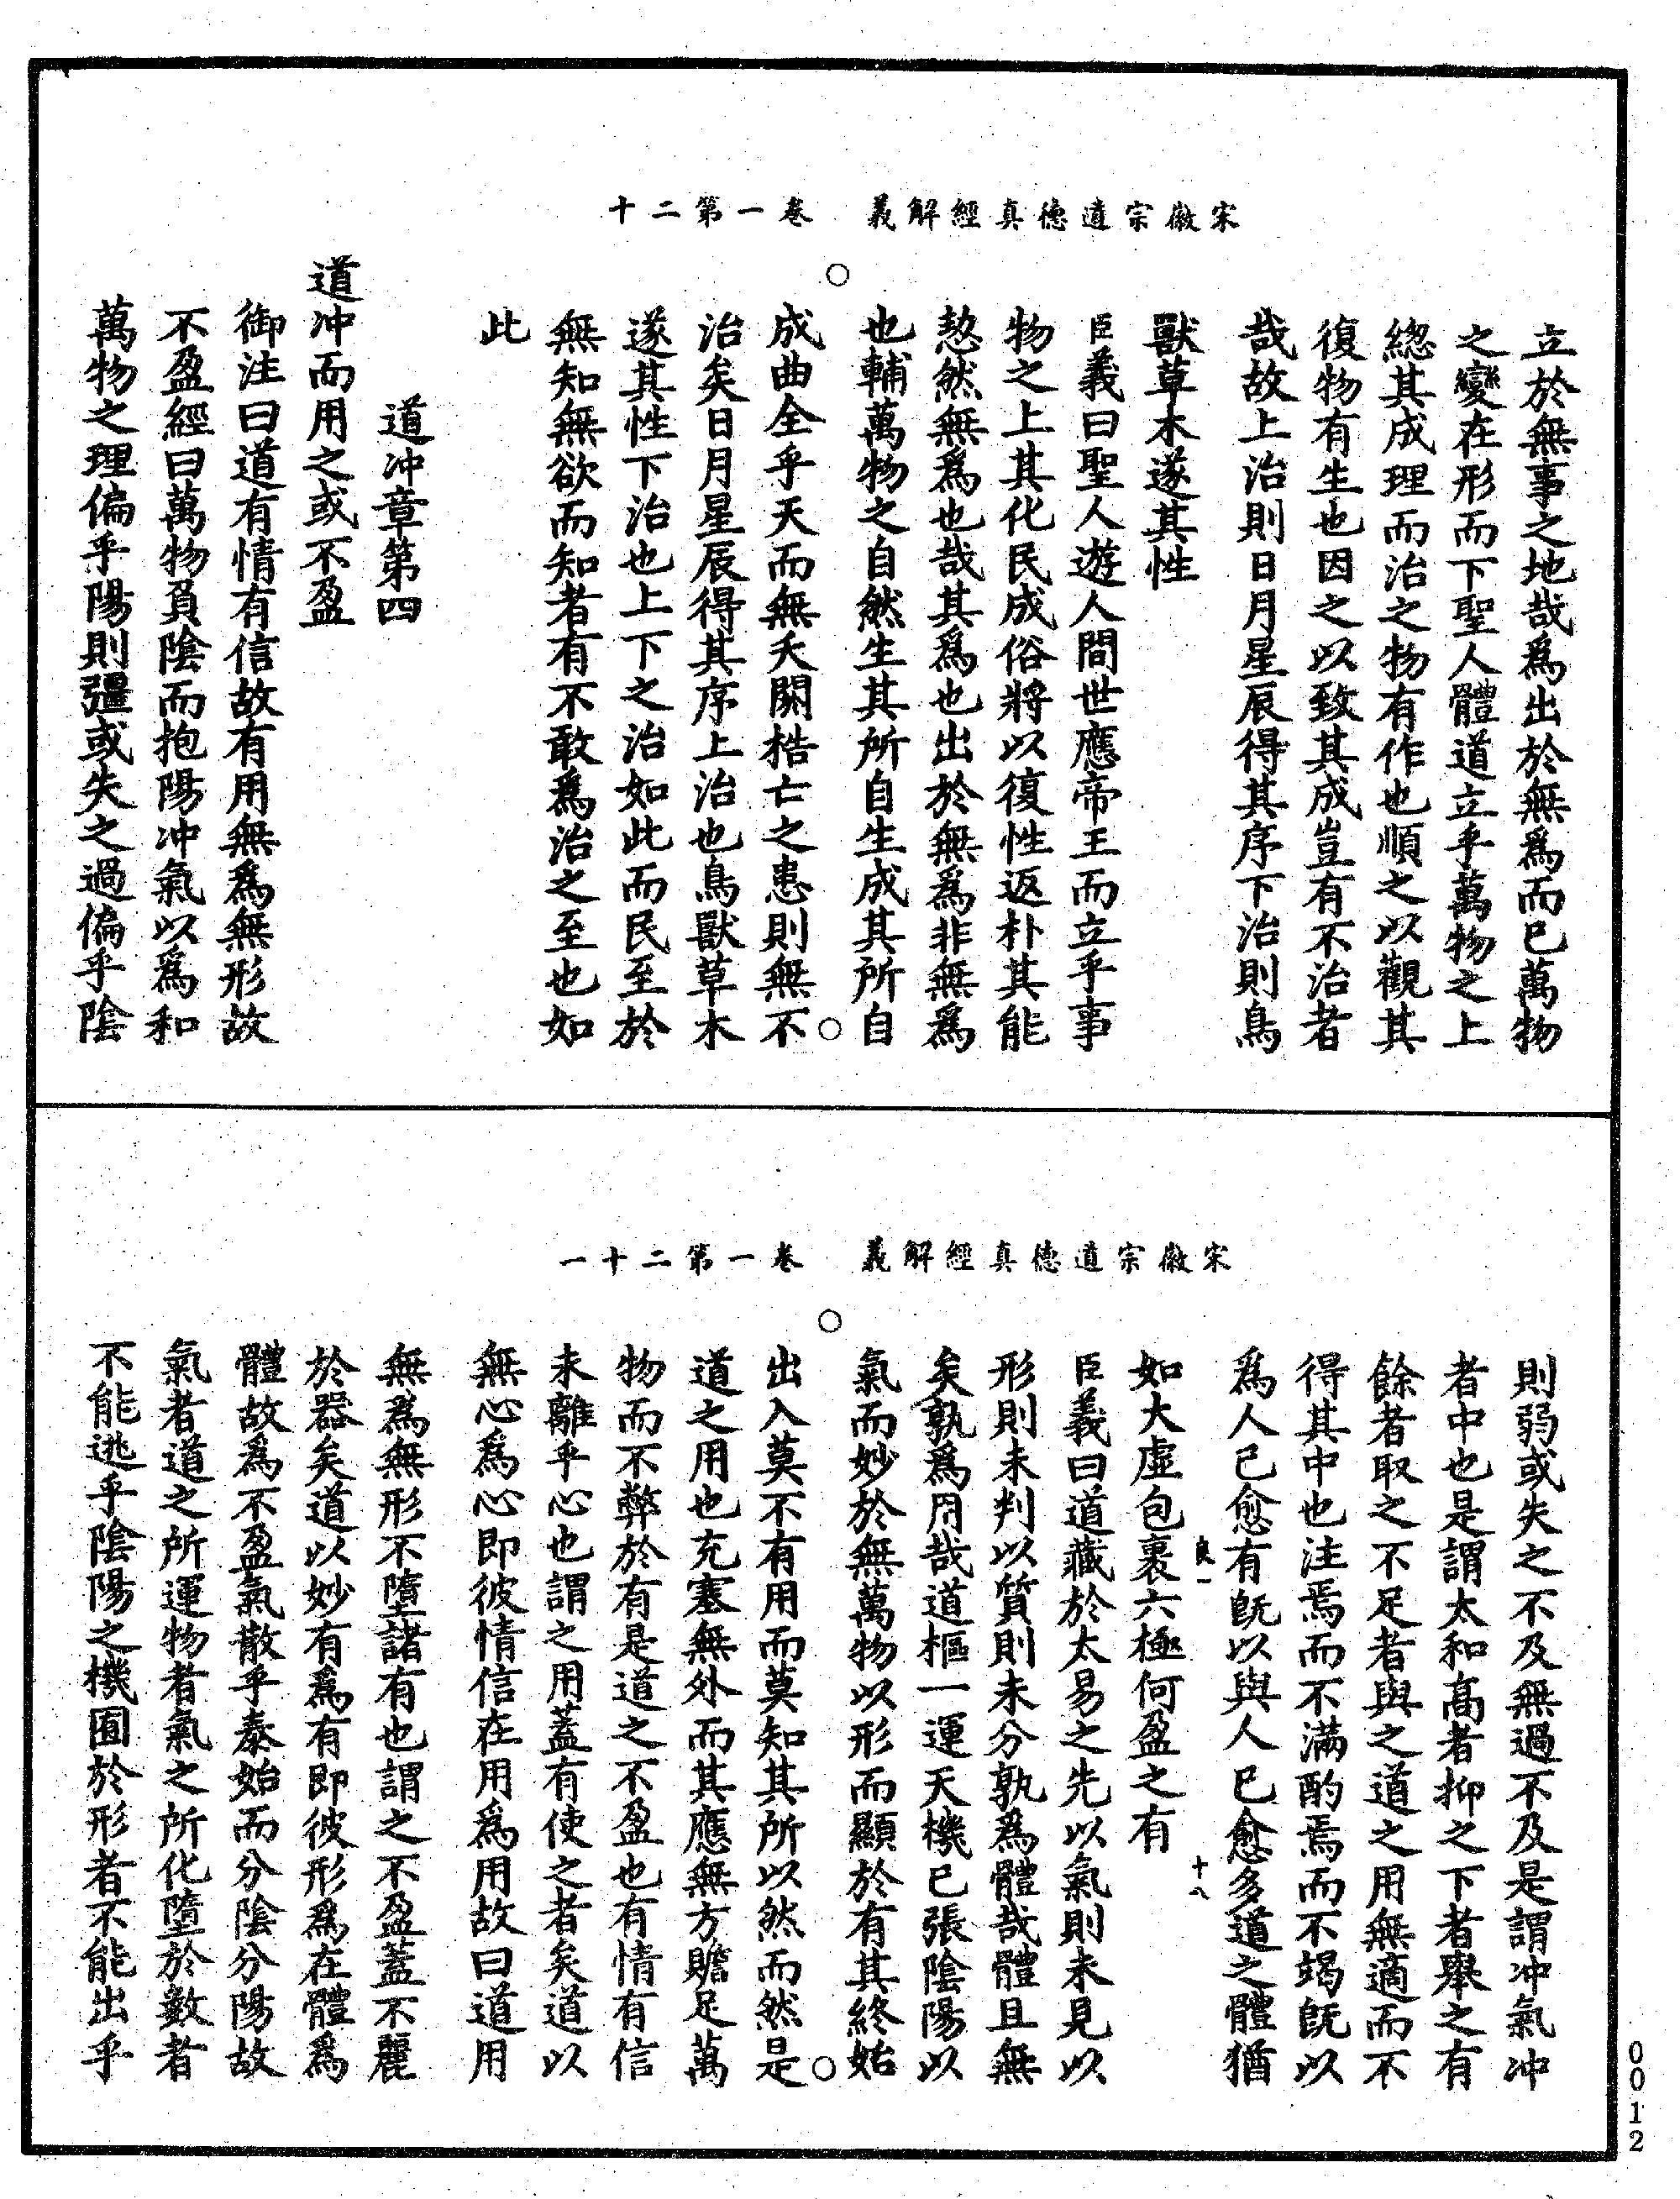 宋徽宗道德真經解義　卷一第二十
立於無事之地哉爲出於無爲而已萬物
之變在形而下聖人體道立乎萬物之上
緫其成理而治之物有作也順之以觀其
復物有生也因之以致其成豈有不治者
哉故上治則日月星辰得其序下治則鳥
獸草木遂其性
臣義曰聖人遊人間世應帝王而立乎事
物之上其化民成俗將以復性返朴其能
愸然無爲也哉其爲也出於無爲非無爲
也輔萬物之自然生其所自生成其所自
成曲全乎天而無夭閼梏亡之患則無不
治矣日月星辰得其序上治也鳥獸草木
遂其性下治也上下之治如此而民至於
無知無欲而知者有不敢爲治之至也如
此
道冲章第四
道冲而用之或不盈
御注曰道有情有信故有用無爲無形故
不盈經曰萬物負陰而抱陽冲氣以爲和
萬物之理偏乎陽則彊或失之過偏乎陰
宋徽宗道德真經解義　卷一第二十一
則弱或失之不及無過不及是謂冲氣冲
者中也是謂太和高者抑之下者舉之有
餘者取之不足者與之道之用無適而不
得其中也注焉而不滿酌焉而不竭旣以
爲人己愈有旣以與人已愈多道之體猶
良一　十八
如大虛包裹六極何盈之有
臣義曰道藏於太易之先以氣則未見以
形則未判以質則未分孰爲體哉體且無
矣孰爲用哉道樞一運天機已張陰陽以
氣而妙於無萬物以形而顯於有其終始
出入莫不有用而莫知其所以然而然是
道之用也充塞無外而其應無方贍足萬
物而不弊於有是道之不盈也有情有信
未離乎心也謂之用蓋有使之者矣道以
無心爲心即彼情信在用爲用故曰道用
無爲無形不墮諸有也謂之不盈蓋不麗
於器矣道以妙有爲有即彼形爲在體爲
體故爲不盈氣散乎泰始而分陰分陽故
氣者道之所運物者氣之所化墮於數者
不能逃乎陰陽之機囿於形者不能出乎
0012